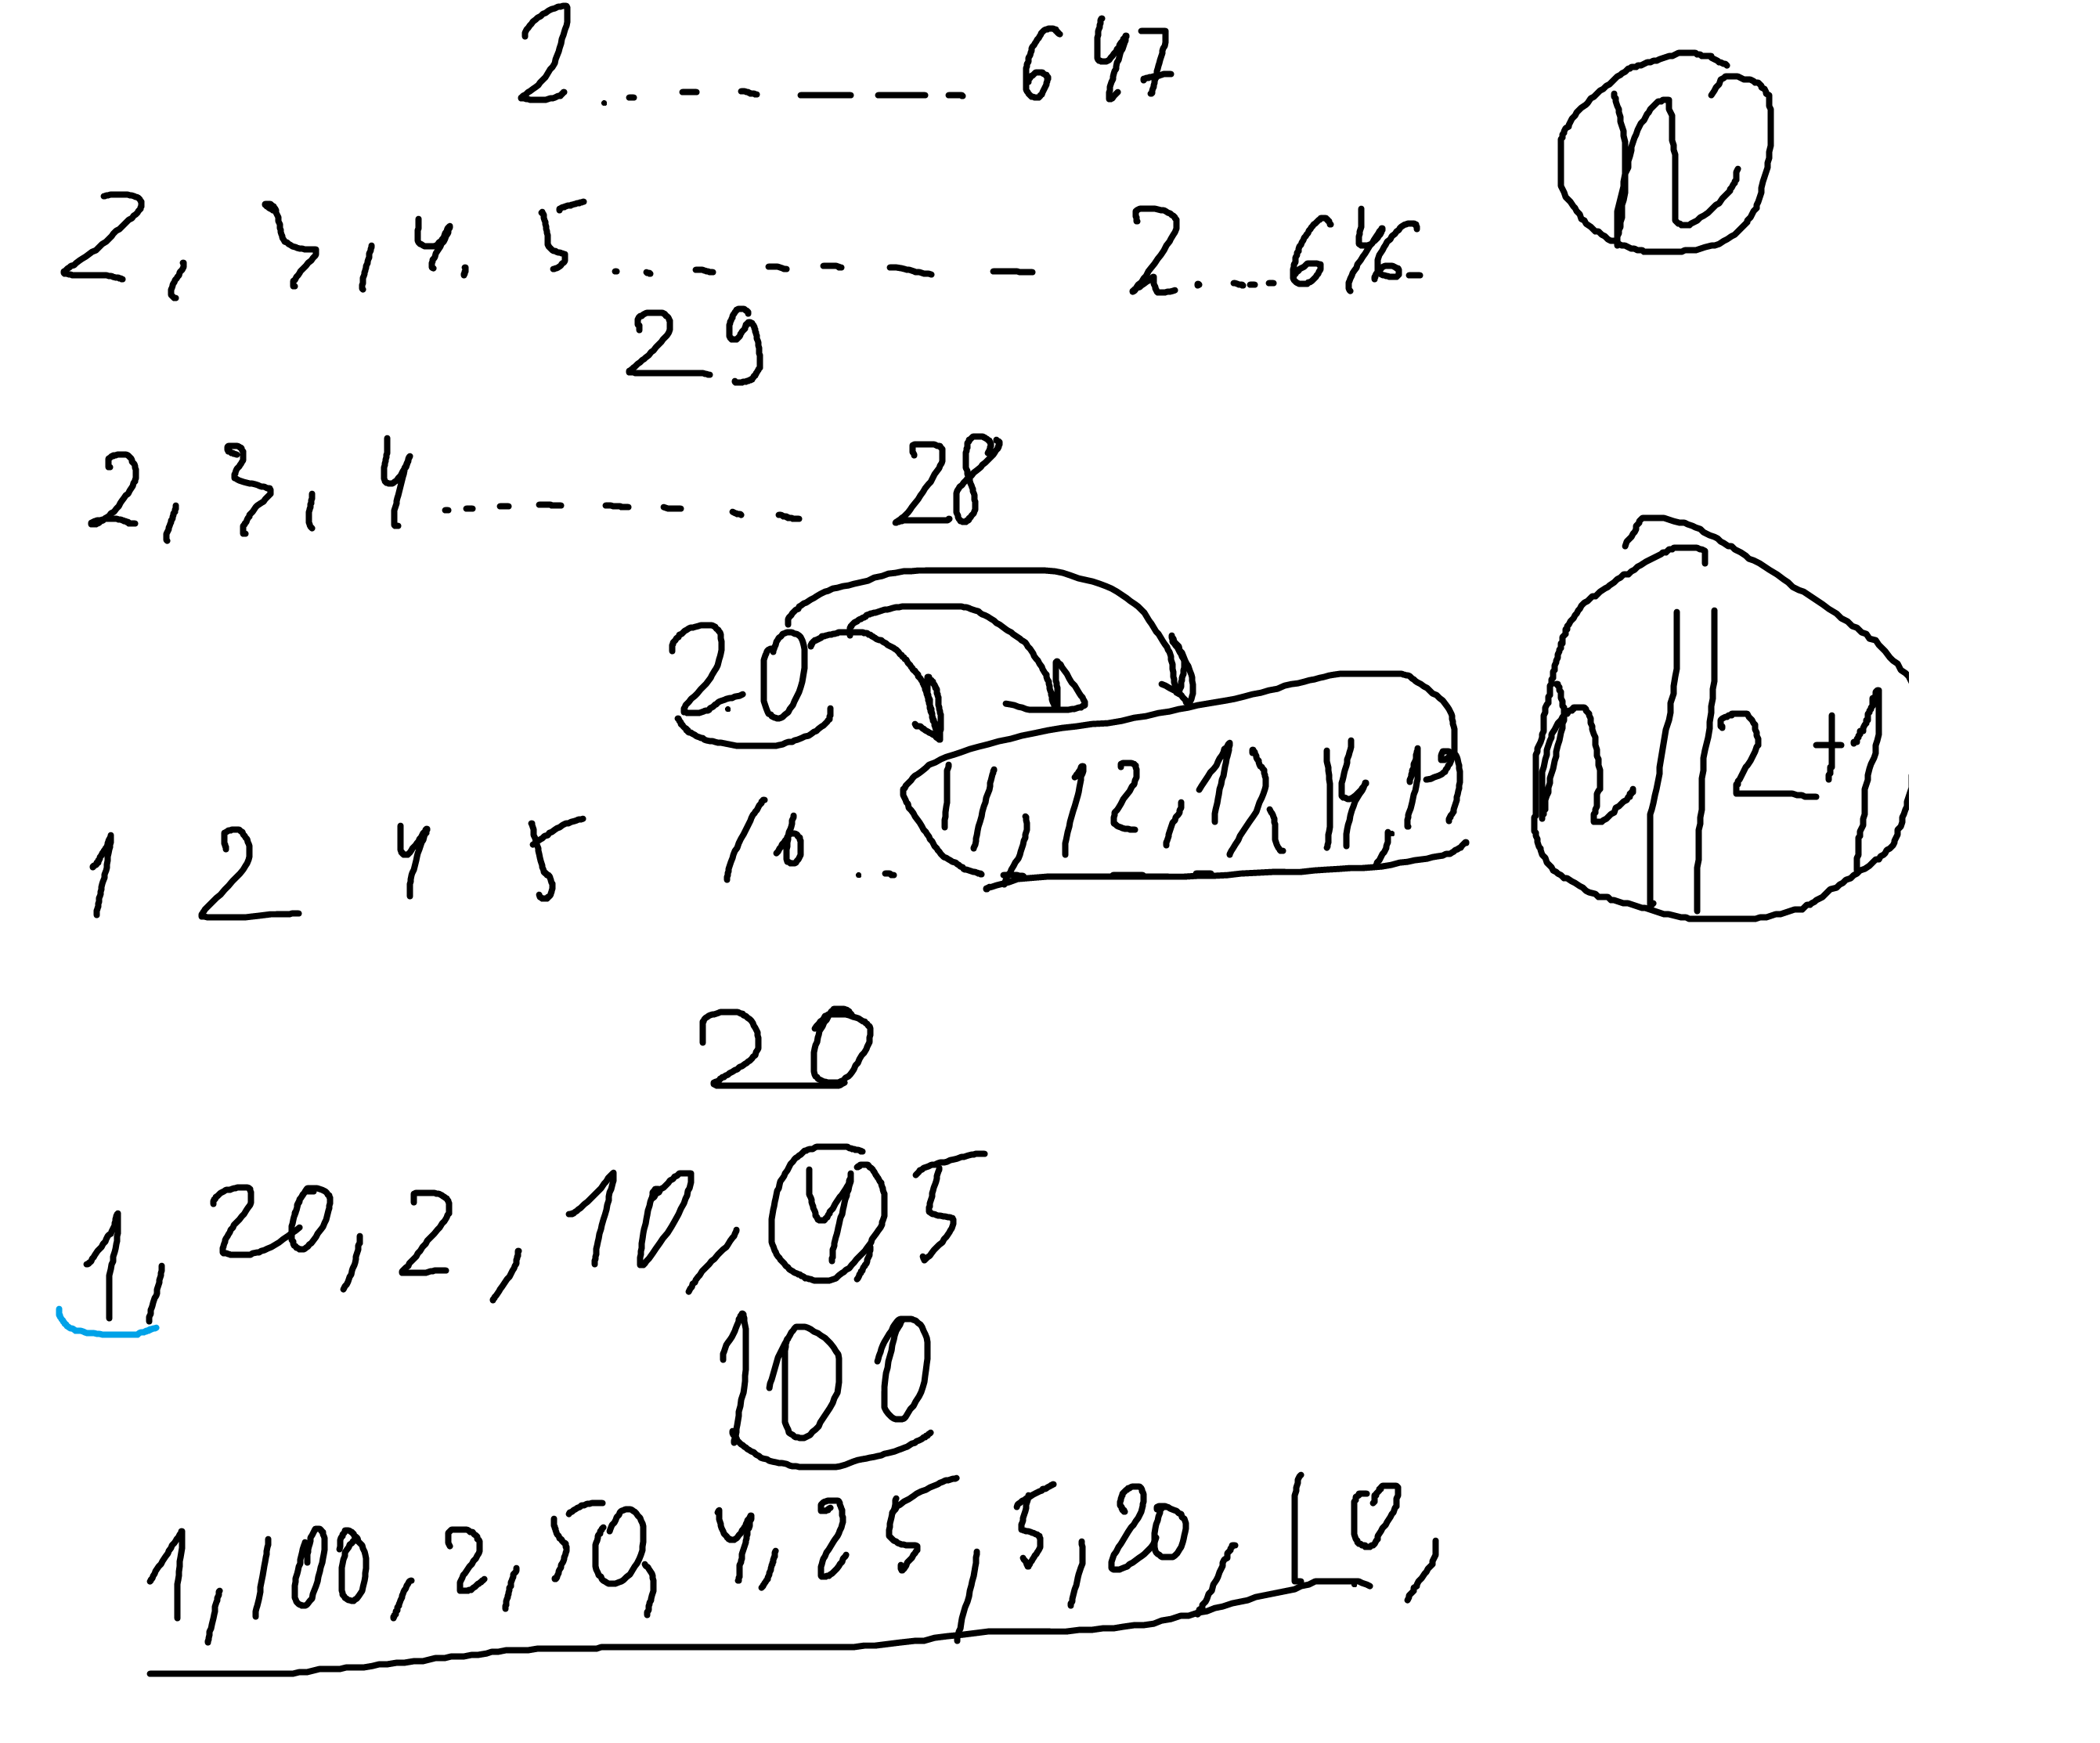 2. - - - - - - 647
n
2, 3, 4, 5 - - - - - - - - 2 . - - - 646 -
29
2, 3, 4 - - - - - - - - 28
20
n/2+1
1 2 4 5 10 . . - - - 11, 12, 13, 14, 19
20
1, 20, 2, 10, 4, 5
100
1, 100, 2, 50, 4, 25, 5, 20, 10,